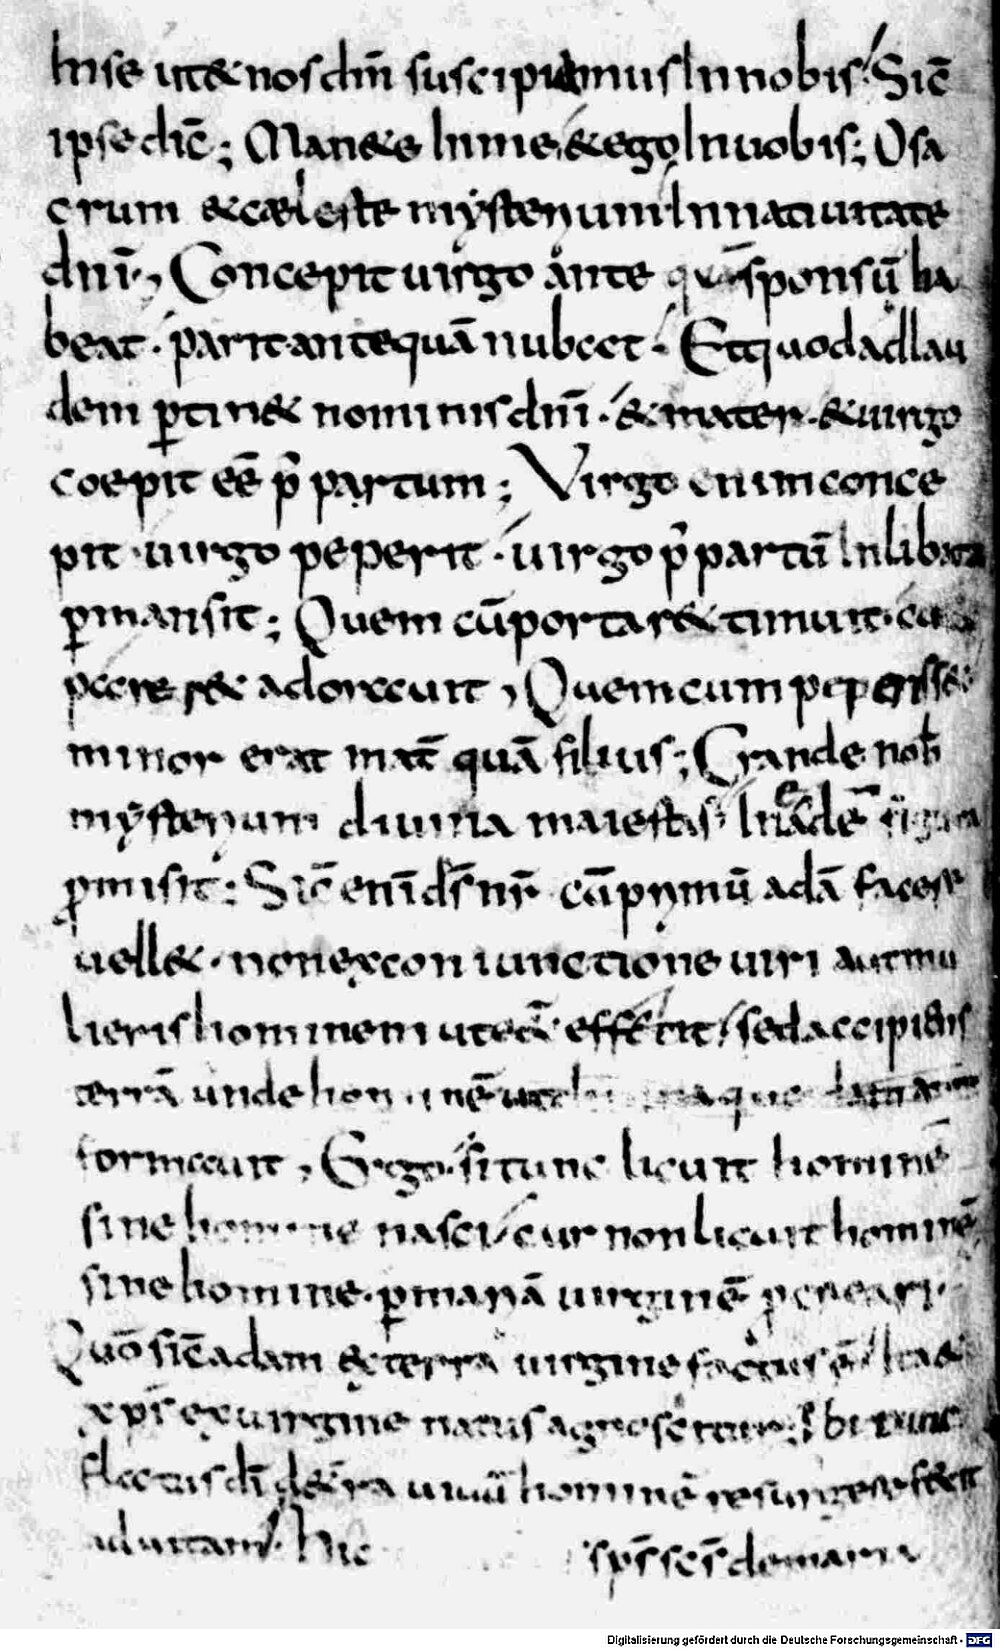 Inse ut & nos dnm̄ suscipiamus In nobis. Sic̄
ipse dic̄; Man&e In me, & ego In uobis; O sa
crum & cæleste mysterium In natiuitate
dnī., Concepit uirgo ante quā sponsū ha
beat. parit antequā nubeet. Et quod ad lau
dem ꝑtin& nominis dnī. & mater. & uirgo
coepit eē p̄ partum; Virgo enim conce
pit. uirgo peperit. uirgo p̄ partū Inlibata
ꝑmansit; Quem cū portar& timuit.
adorauit, Quem cum peperisse
minor erat mat̄ quā filius; Grande nob̄
mysterium diuina maiestas. In adē figura
ꝓmisit: Sic̄ enī ds̄ nr̄ cū prymū adā facere
uell&. non ex coniunctione uiri aut mu
lieris hominem ut effecit, sed accipiens
terrā unde hominē
formauit, Ergo. si tunc licuit hominē
sine homine nasci, cur non licuit hominē
sine homine. ꝑ mariā uirginē
Quō sic̄ adam & terra uirgine factus ē. Ita &
xp̄s ex uirgine natus agnoscitur; Ibi tunc
flatus dī de terra uiuū hominē resurgere fecit
ad uitam. hic sp̄s sc̄s de maria